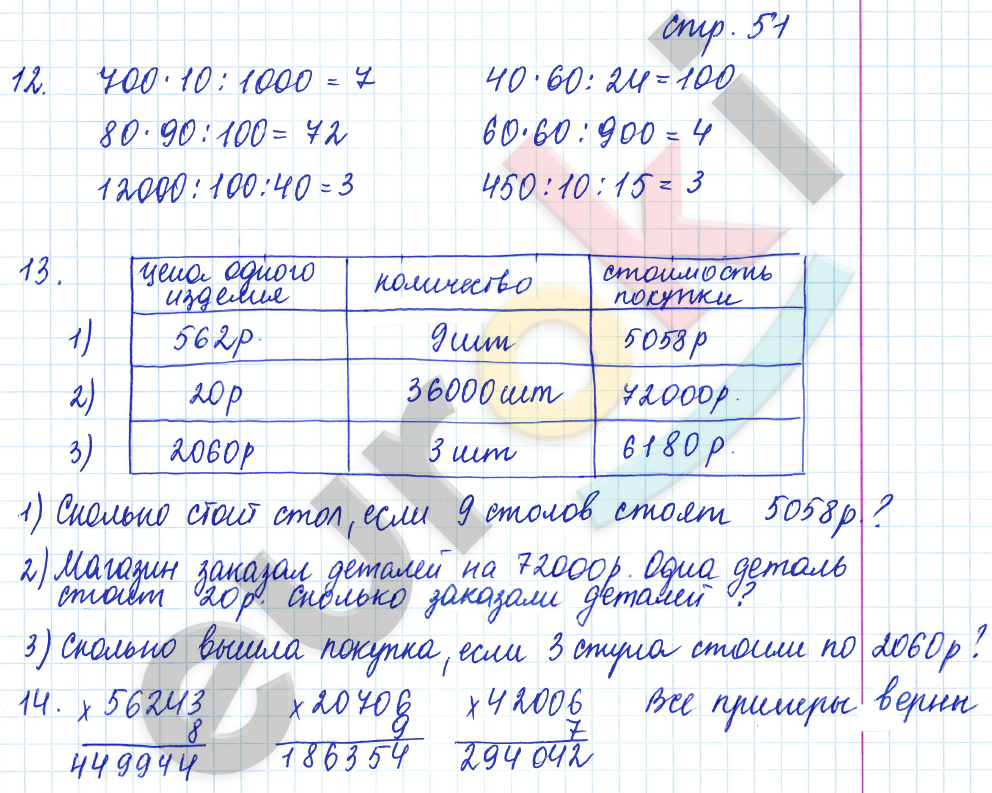 стр. 51
12. 700·10:1000=7 40·60:24=100
80·90:100=72 60·60:900=4
12000:100:40=3 450:10:15=3
13. цена одного изделия количество стоимость покупки
1) 562р. 9шт 5058р
2) 20р 36000шт 72000р.
3) 2060р 3шт 6180р.
1) Сколько стоит стол, если 9 столов стоят 5058р.?
2) Магазин заказал деталей на 72000р. Одна деталь
стоит 20р. Сколько заказали деталей?
3) Сколько вышла покупка, если 3 стула стоили по 2060р?
14. × 56243 × 20706 × 42006 Все примеры верны
8 9 7
449944 186354 294042
euroki